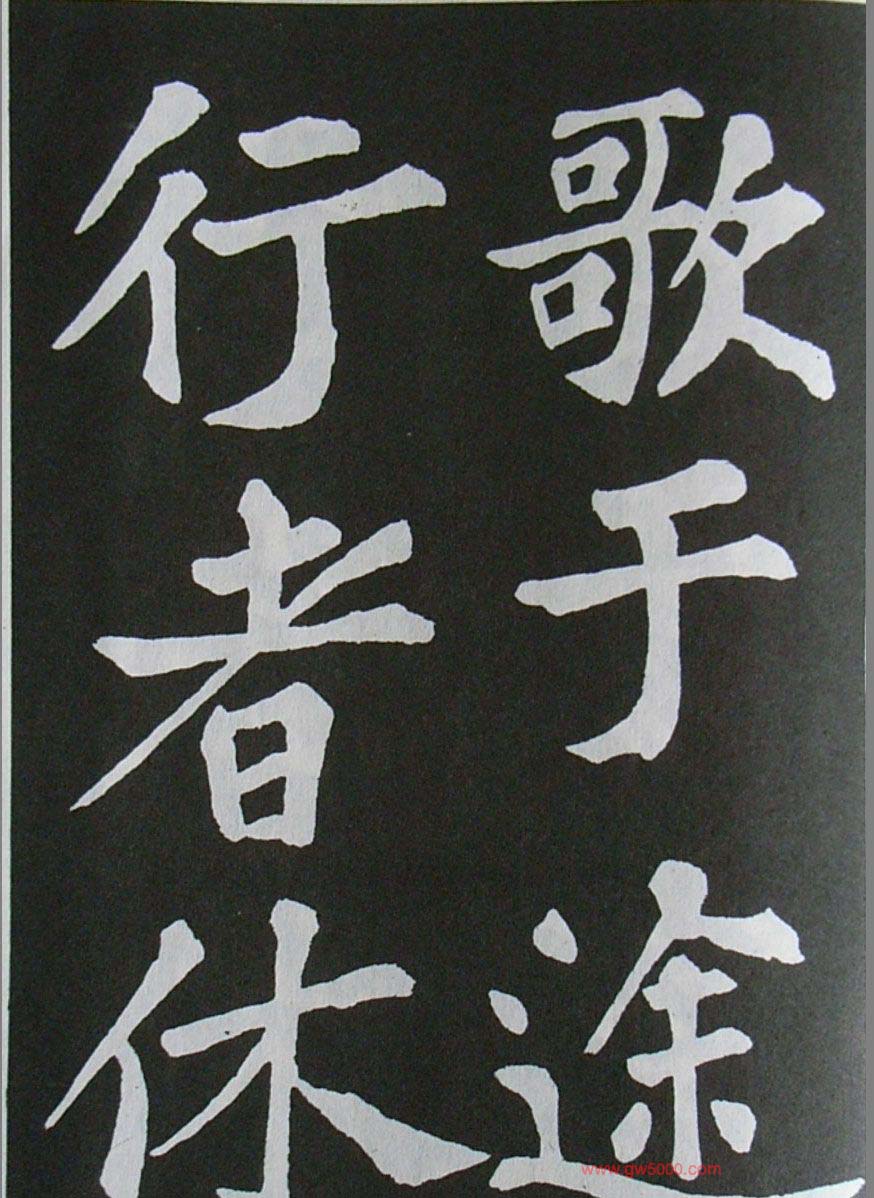 歌于途
行者休
www.gw5000.com